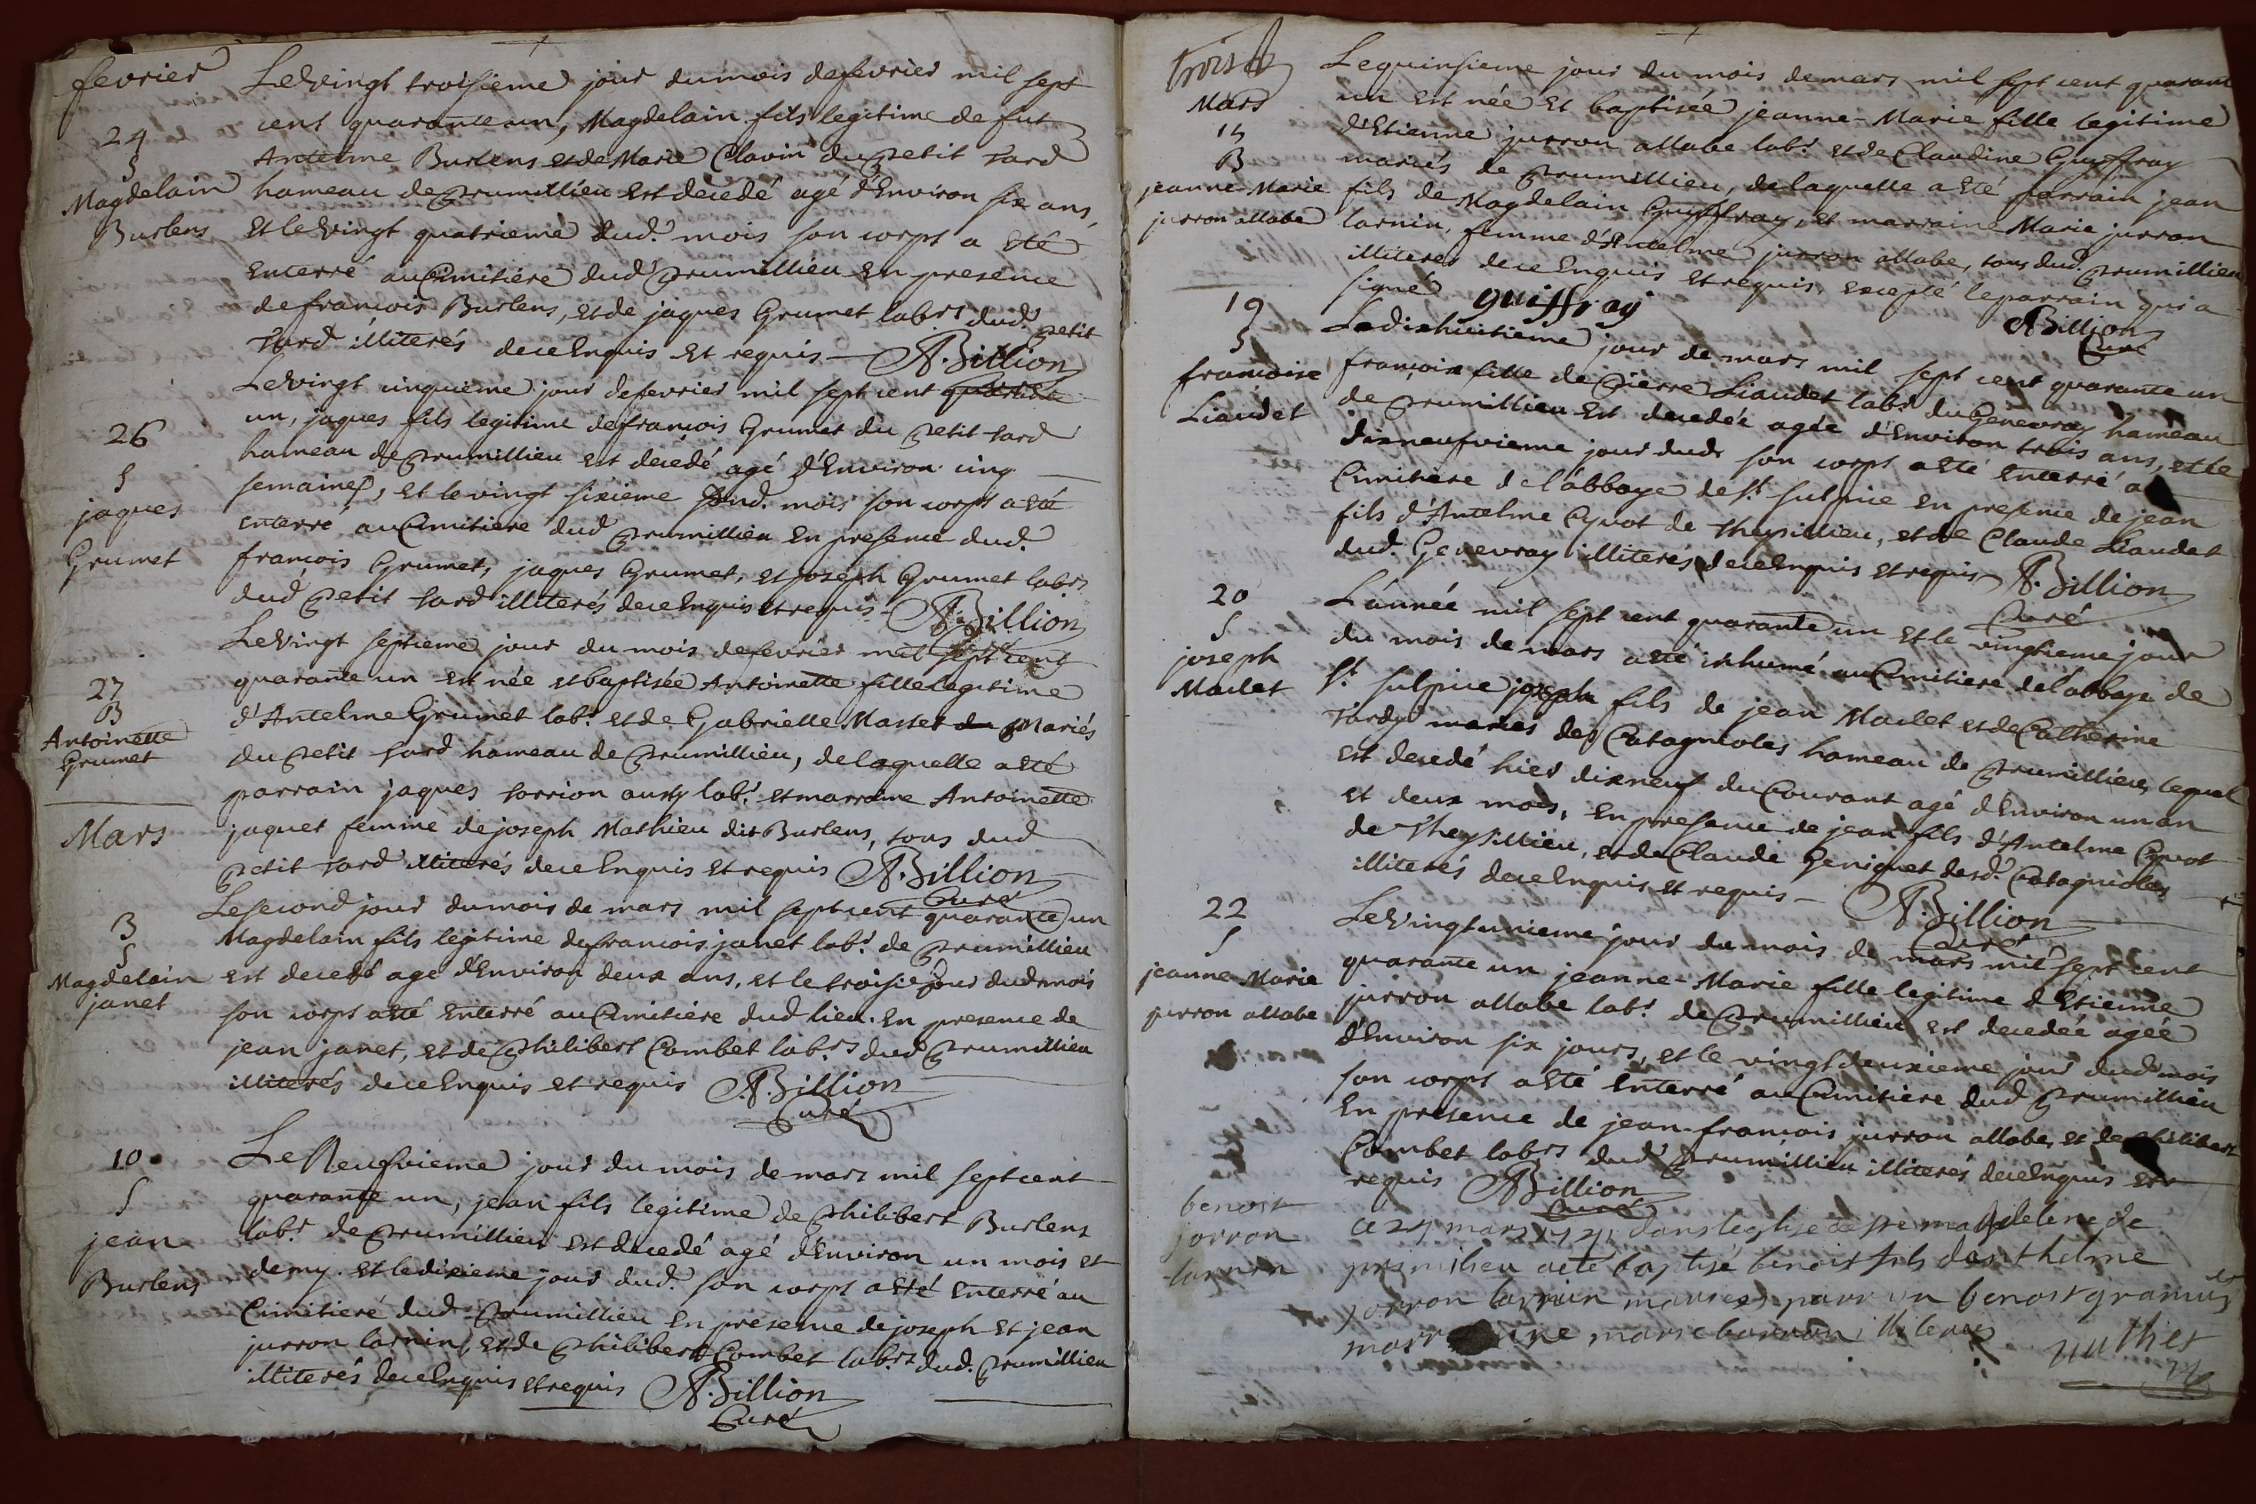 fevrier
Le Vingt troisieme jour du mois de fevrier mil sept
24
cent quarante un, Magdelain fils legitime de fut
S
Antelme Burlens et de Marie Clavin du Petit tard
Magdelain
hameau de Prumillieu Est decedé agé d'Environ six ans,
Burlens
Et le Vingt quatrieme dud. mois son corps a Eté
Enterré au Cimitiere dud Prumillieu En presence
de francois Burlens, et de jaques Grumet labrs dud. petit
tard illiterés de ce Enquis Et requis - A. Billion
Le Vingt cinquieme jour de fevrier mil sept cent quarante
un, jaques fils legitime de francois Grumet du Petit tard
26
hameau de Prumillieu Est decedé agé d'Environ cinq
S
semaines, Et le vingt sixieme dud. mois son corps a Eté
jaques
Enterré au Cimitiere dud Prumillieu En presence dud.
Grumet
francois Grumet, jaques Grumet, et joseph Grumet labrs
dud Petit tard illiterés de ce Enquis et requis - A. Billion
Le Vingt septieme jour du mois de fevrier mil sept cent
27
quarante un est née et baptisée Antoinette fille legitime
B
d'Antelme Grumet labr. et de Gabrielle Masset Mariés
Antoinette
du Petit tard hameau de Prumillieu, de laquelle a Eté
Grumet
parrain jaques labr. et marraine Antoinette
Mars
jaquet femme de joseph Mathieu dit Burlens, tous dud
Petit tard illiterés de ce Enquis et requis A. Billion
Curé
Le second jour du mois de mars mil sept cent quarante un
3
Magdelain fils legitime de francois janet labr. de Prumillieu
S
est decedé agé d'Environ deux ans, et le troisie jour dud mois
Magdelain
son corps a Eté Enterré au Cimitiere dud lieu. En presence de
janet
jean janet, et de Philibert Combet labrs dud Prumillieu
illiterés de ce Enquis et requis A. Billion
Curé
10
Le Neufvieme jour du mois de mars mil sept cent
S
quarante un, jean fils legitime de Philibert Burlens
jean
labr. de Prumillieu Est decedé agé d'Environ un mois et
Burlens
demy. Et le dixieme jour dud. son corps a Eté Enterré au
Cimitiere dud Prumillieu En presence de joseph Et jean
jurron larnin, et de Philibert Combet labrs dud. Prumillieu
illiterés de ce Enquis et requis A. Billion
Curé
trois
Mars
Le quinsieme jour du mois de mars mil sept cent quarante
15
un Est née Et baptisée jeanne-Marie fille legitime
B
d'Etienne jurron allabe labr. et de Claudine Guyffray
jeanne-Marie
mariés de Prumillieu, de laquelle a Eté parrain jean
jurron allabe
fils de Magdelain Guyffray, et marraine Marie jurron
larnin, femme d'Antelme jurron allabe, tous dud. Prumillieu
illiterés de ce Enquis et requis, excepté le parrain qui a
signé guiffray
A Billion
Curé
19
Le dixhuitieme jour de mars mil sept cent quarante un
S
francoise
francoise fille de Pierre Liaudet labr. du Genevray hameau
Liaudet
de Prumillieu Est decedée agée d'Environ trois ans, et le
dixneufvieme jour dud son corps a Eté Enterré a
Cimitiere de l'abbaye de St. Sulpice En presence de jean
fils d'Antelme Cyvot de thesillieu, et de Claude Liaudet
dud. Genevray illiterés de ce Enquis et requis A. Billion
Curé
20
L'année mil sept cent quarante un Et le vingtieme jour
S
du mois de mars a Eté inhumé au Cimitiere de l'abbaye de
joseph
St. Sulpice joseph fils de jean Maclet et de Catherine
Maclet
tardy mariés des Catagnoles hameau de Prumillieu, lequel
Est decedé hier dixneuf du Courant agé d'Environ un an
et deux mois, En presence de jean fils d'Antelme Cyvot
de theysillieu, et de Claude Geniquet desd. Catagnioles
illiterés de ce Enquis et requis - A. Billion
Curé
22
Le Vingtunieme jour du mois de mars mil sept cent
S
quarante un jeanne-Marie fille legitime d'Etienne
jeanne Marie
jurron allabe labr. de Prumillieu Est decedée agée
jurron allabe
d'Environ six jours, et le vingtdeuxieme jour dud mois
son corps a Eté Enterré au Cimitiere dud Prumillieu
En presence de jean-francois jurron allabe, et de Philibert
Combet labrs dud Prumillieu illiterés de ce Enquis et
requis A Billion
Curé
benost
jorron
larnin
le 24 mars 1741 dans l'eglise de ste magdelene de
premilieu a ete baptisé benoist fils d'anthelme
jorron larnin mariees parr un benost
marr ine marie illiteres